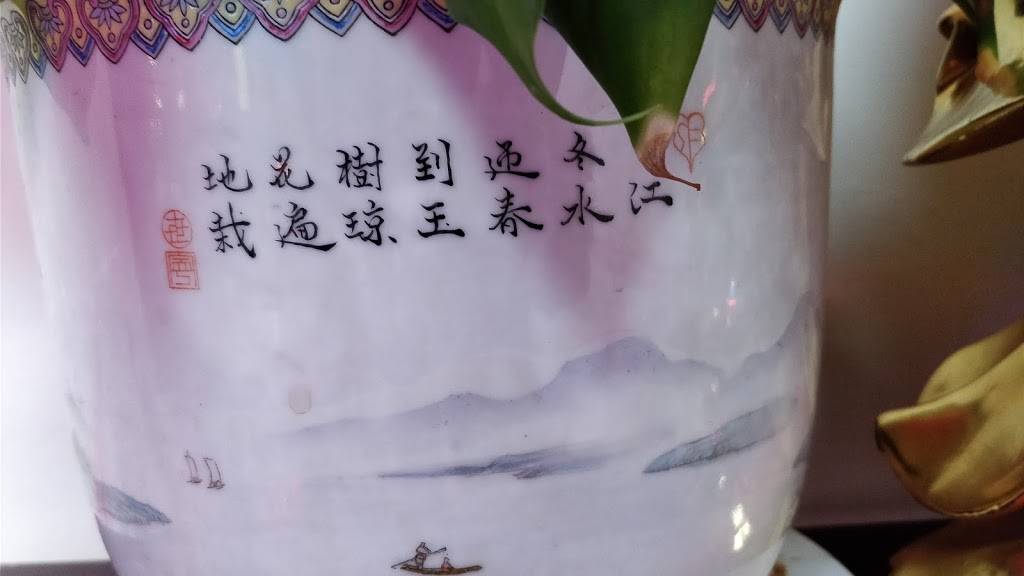 江
冬水
迎春
到玉
樹瓊
花遍
地栽